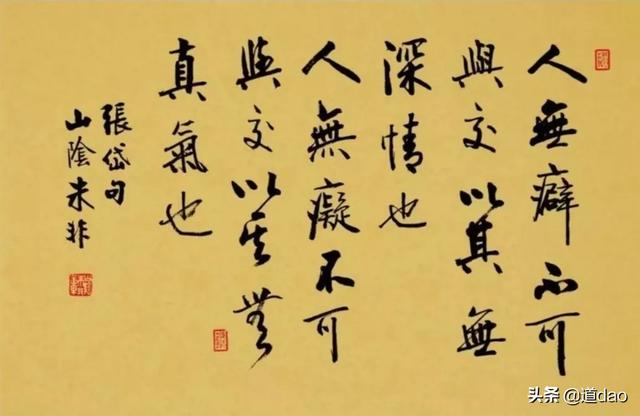 人無癖不可
與交以其無
深情也
人無癡不可
與交以其無
真氣也
張岱句
山陰非
头条 @道dao